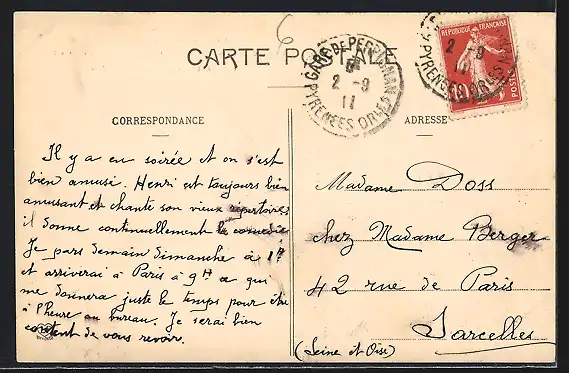 CARTE POSTALE
GARE DE PERPIGNAN
2 - 9
11
PYRENEES ORLES
REPUBLIQUE FRANÇAISE
2 9
10
POSTES
CORRESPONDANCE
ADRESSE
Il y a eu soirée et on s'est
bien amusé. Henri est toujours bien
amusant et chante son vieux répertoire,
il donne continuellement la comédie
Je pars demain dimanche à 1H
et arriverai à Paris à 9H ce qui
me donnera juste le temps pour être
à l'heure au bureau. Je serai bien
content de vous revoir.
Madame Doss
chez Madame Berger
42 rue de Paris
Sarcelles
(Seine et Oise)